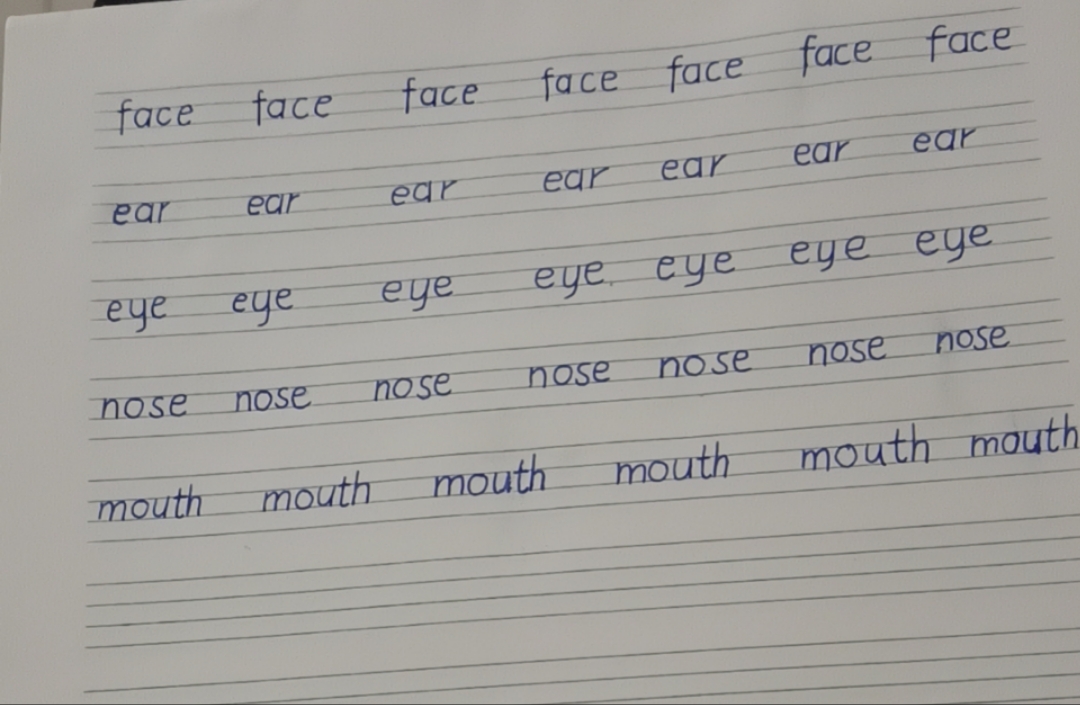 face face face face face face face
ear ear ear ear ear ear ear
eye eye eye eye eye eye eye
nose nose nose nose nose nose nose
mouth mouth mouth mouth mouth mouth